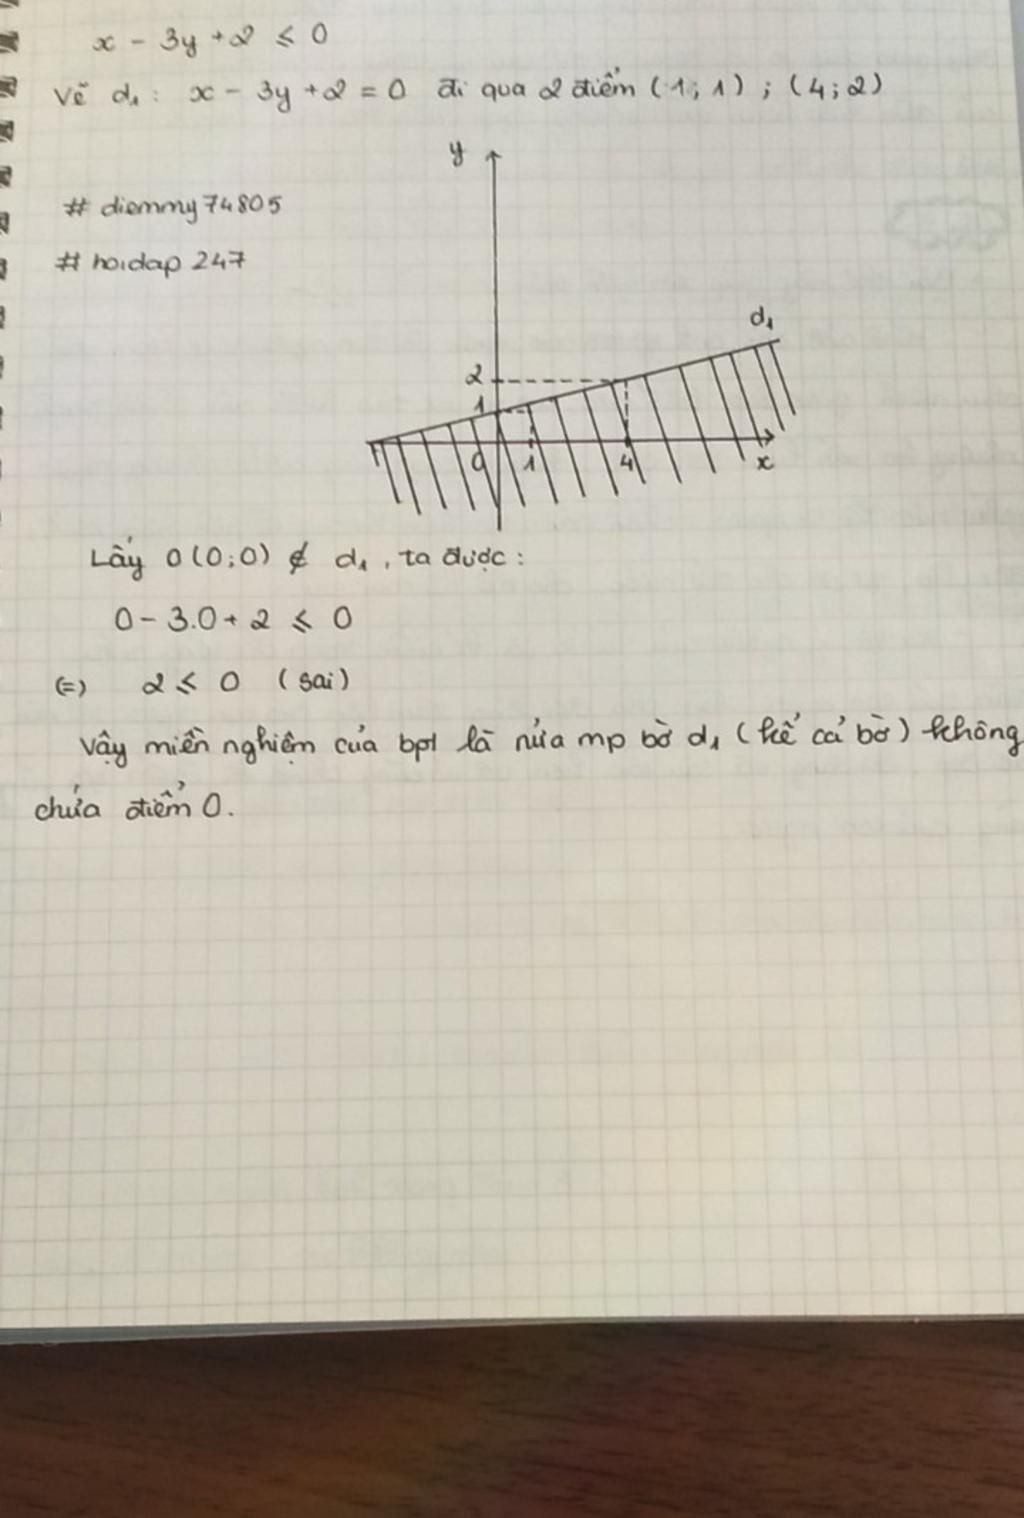 x - 3y + 2 ⩽ 0
Vẽ d₁: x - 3y + 2 = 0 đi qua 2 điểm (1; 1) ; (4; 2)
y
# diemmy74805
# hoidap 247
d₁
2
1
0 1 4 x
Lấy O(0;0) ∉ d₁, ta được:
0 - 3.0 + 2 ⩽ 0
(=) 2 ⩽ 0 (sai)
Vậy miền nghiệm của bpt là nửa mp bờ d₁ (kể cả bờ) không
chứa điểm O.